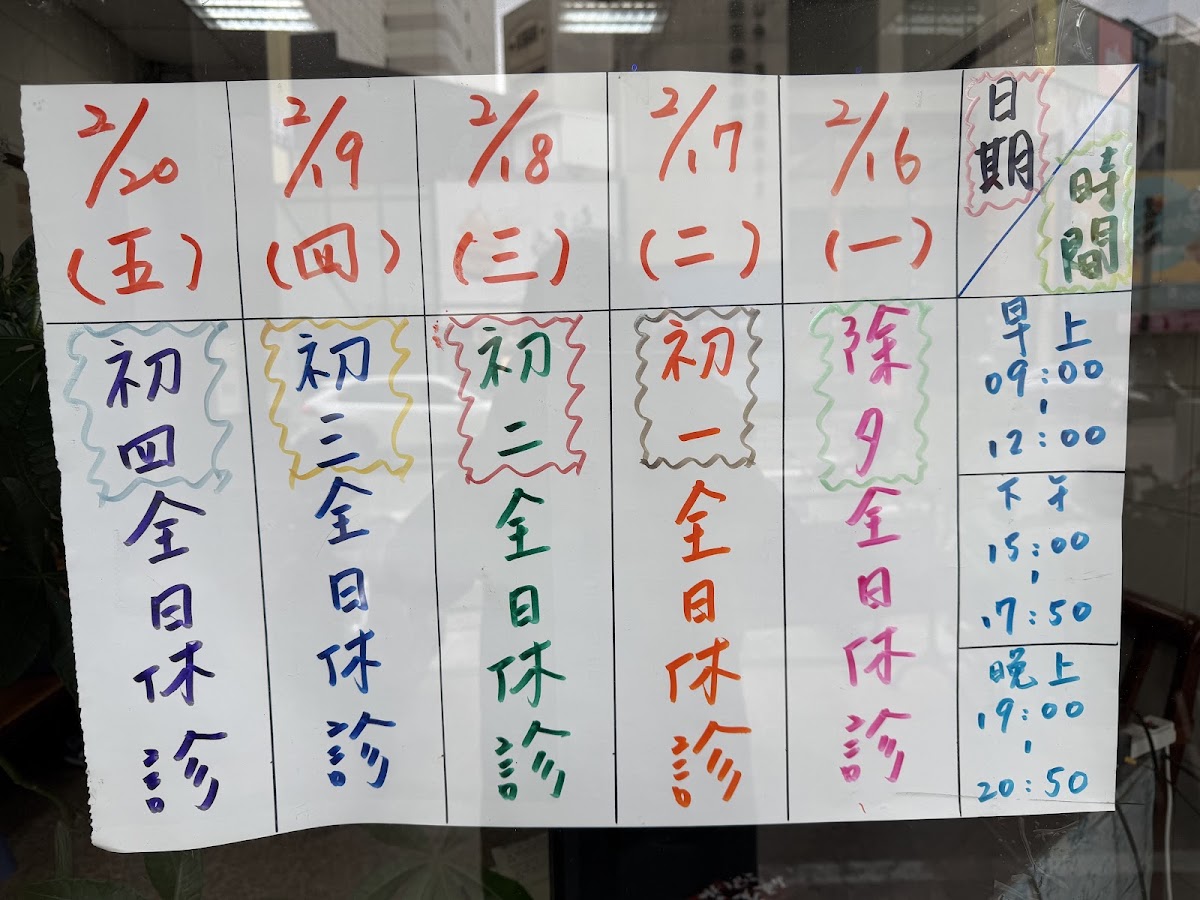 日期
時間
早上
09:00
-
12:00
下午
15:00
-
17:50
晚上
19:00
-
20:50
2/16
(一)
除夕全日休診
2/17
(二)
初一全日休診
2/18
(三)
初二全日休診
2/19
(四)
初三全日休診
2/20
(五)
初四全日休診